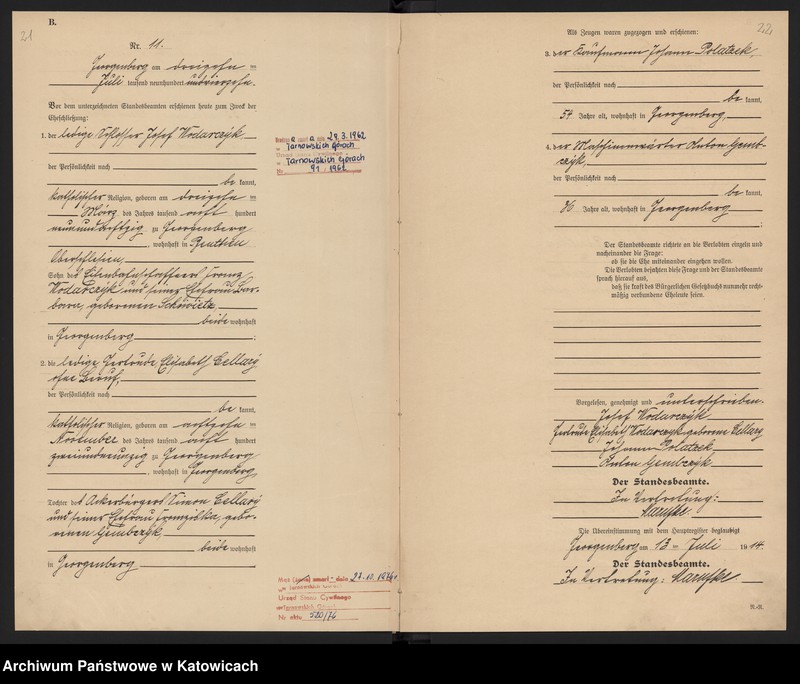 21
B.
Nr. 11.
Georgenberg am dreizehn ten
Juli tausend neunhundert und vierzehn.
Vor dem unterzeichneten Standesbeamten erschienen heute zum Zweck der
Eheschließung:
1. der ledige Schlosser Josef Wodarczyk
der Persönlichkeit nach
be kannt,
katholischer Religion, geboren am dreizehn ten
März des Jahres tausend acht hundert
neunundachtzig zu Georgenberg
, wohnhaft in Beuthen
Oberschlesien
Sohn des Eisenbahnschaffners Franz
Wodarczyk und seiner Ehefrau Bar-
bara, geborenen
beide wohnhaft
in Georgenberg ;
2. die ledige Gertrude Elisabeth Cellary
ohne Beruf,
der Persönlichkeit nach
be kannt,
katholischer Religion, geboren am achtzehn ten
November des Jahres tausend acht hundert
zweiundneunzig zu Georgenberg
, wohnhaft in Georgenberg,
Tochter des Ackerbürgers Simon Cellary
und seiner Ehefrau Franziska, gebo-
renen Gembczyk
beide wohnhaft
in Georgenberg
29.3.1962
w Tarnowskich Górach
Urzad Stanu Cywilnego
w Tarnowskich Górach
Nr. 91 1962
Mąż zmarł dnia 22.10.1976
w Tarnowskich Górach
Urząd Stanu Cywilnego
w Tarnowskich Górach
Nr aktu 520/76
22
Als Zeugen waren zugezogen und erschienen:
3. der Kaufmann Johann Polatzek,
der Persönlichkeit nach
be kannt,
54 Jahre alt, wohnhaft in Georgenberg,
4. der Maschinenwärter Anton Gemb-
czyk,
der Persönlichkeit nach
be kannt,
Jahre alt, wohnhaft in Georgenberg
;
Der Standesbeamte richtete an die Verlobten einzeln und
nacheinander die Frage:
ob sie die Ehe miteinander eingehen wollen.
Die Verlobten bejahten diese Frage und der Standesbeamte
sprach hierauf aus,
daß sie kraft des Bürgerlichen Gesetzbuchs nunmehr recht-
mäßig verbundene Eheleute seien.
Vorgelesen, genehmigt und unterschrieben.
Josef Wodarczyk
Gertrude Elisabeth Wodarczyk geborene Cellary
Johann Polatzek
Anton Gembczyk
Der Standesbeamte.
In Vertretung:
Die Übereinstimmung mit dem Hauptregister beglaubigt
Georgenberg am 13 ten Juli 1914.
Der Standesbeamte.
In Vertretung:
R.-R.
Archiwum Państwowe w Katowicach